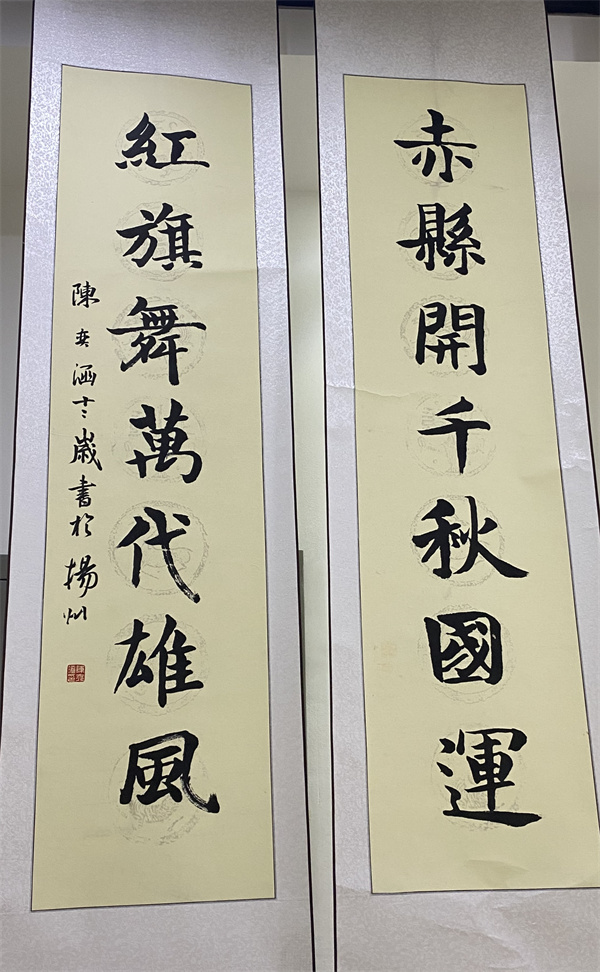 赤縣開千秋國運
紅旗舞萬代雄風
陳奕涵十二歲書於揚州